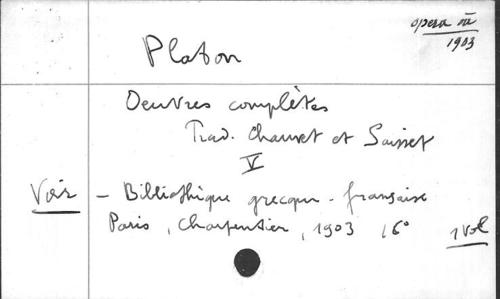 opera
1903
Platon
Oeuvres complètes
Trad. Chauvet et Saisset
V
Voir - Bibliothèque grecque-française
Paris, Charpentier, 1903 16°
1 vol